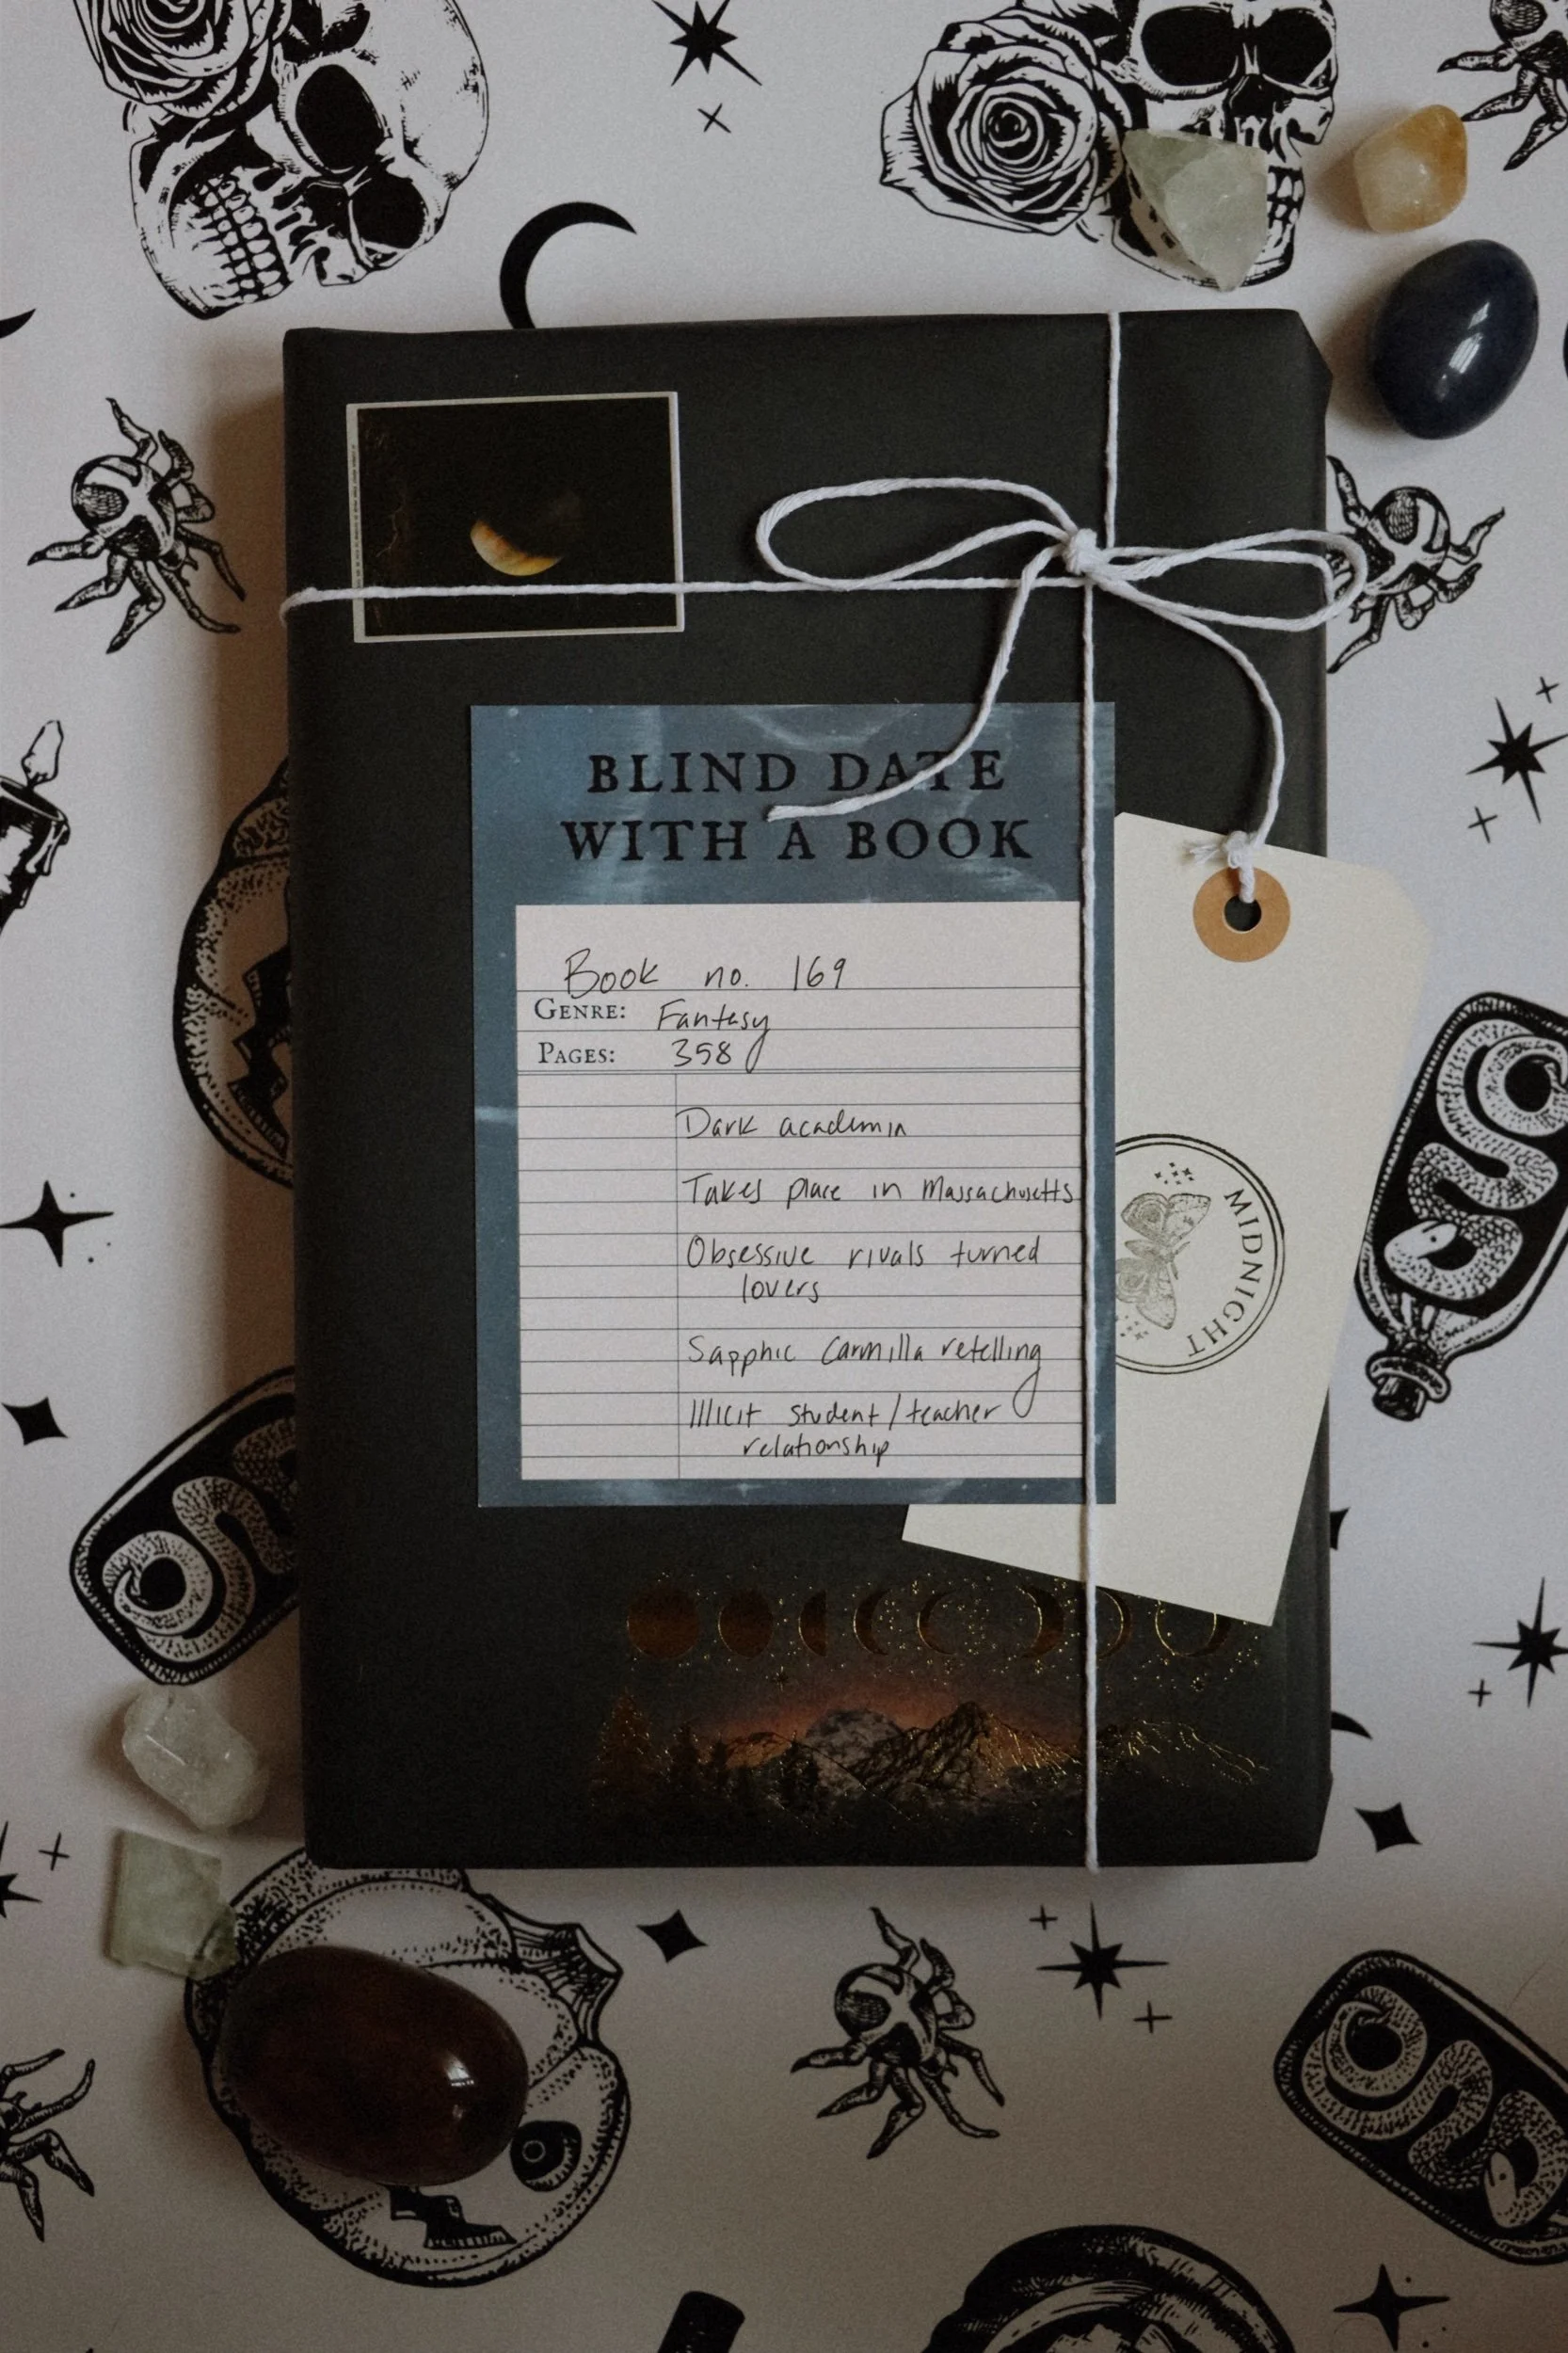 BLIND DATE
WITH A BOOK
Book no. 169
GENRE: Fantasy
PAGES: 358
Dark academia
Takes place in Massachusetts
Obsessive rivals turned
lovers
Sapphic Carmilla retelling
Illicit student/teacher
relationship
MIDNIGHT